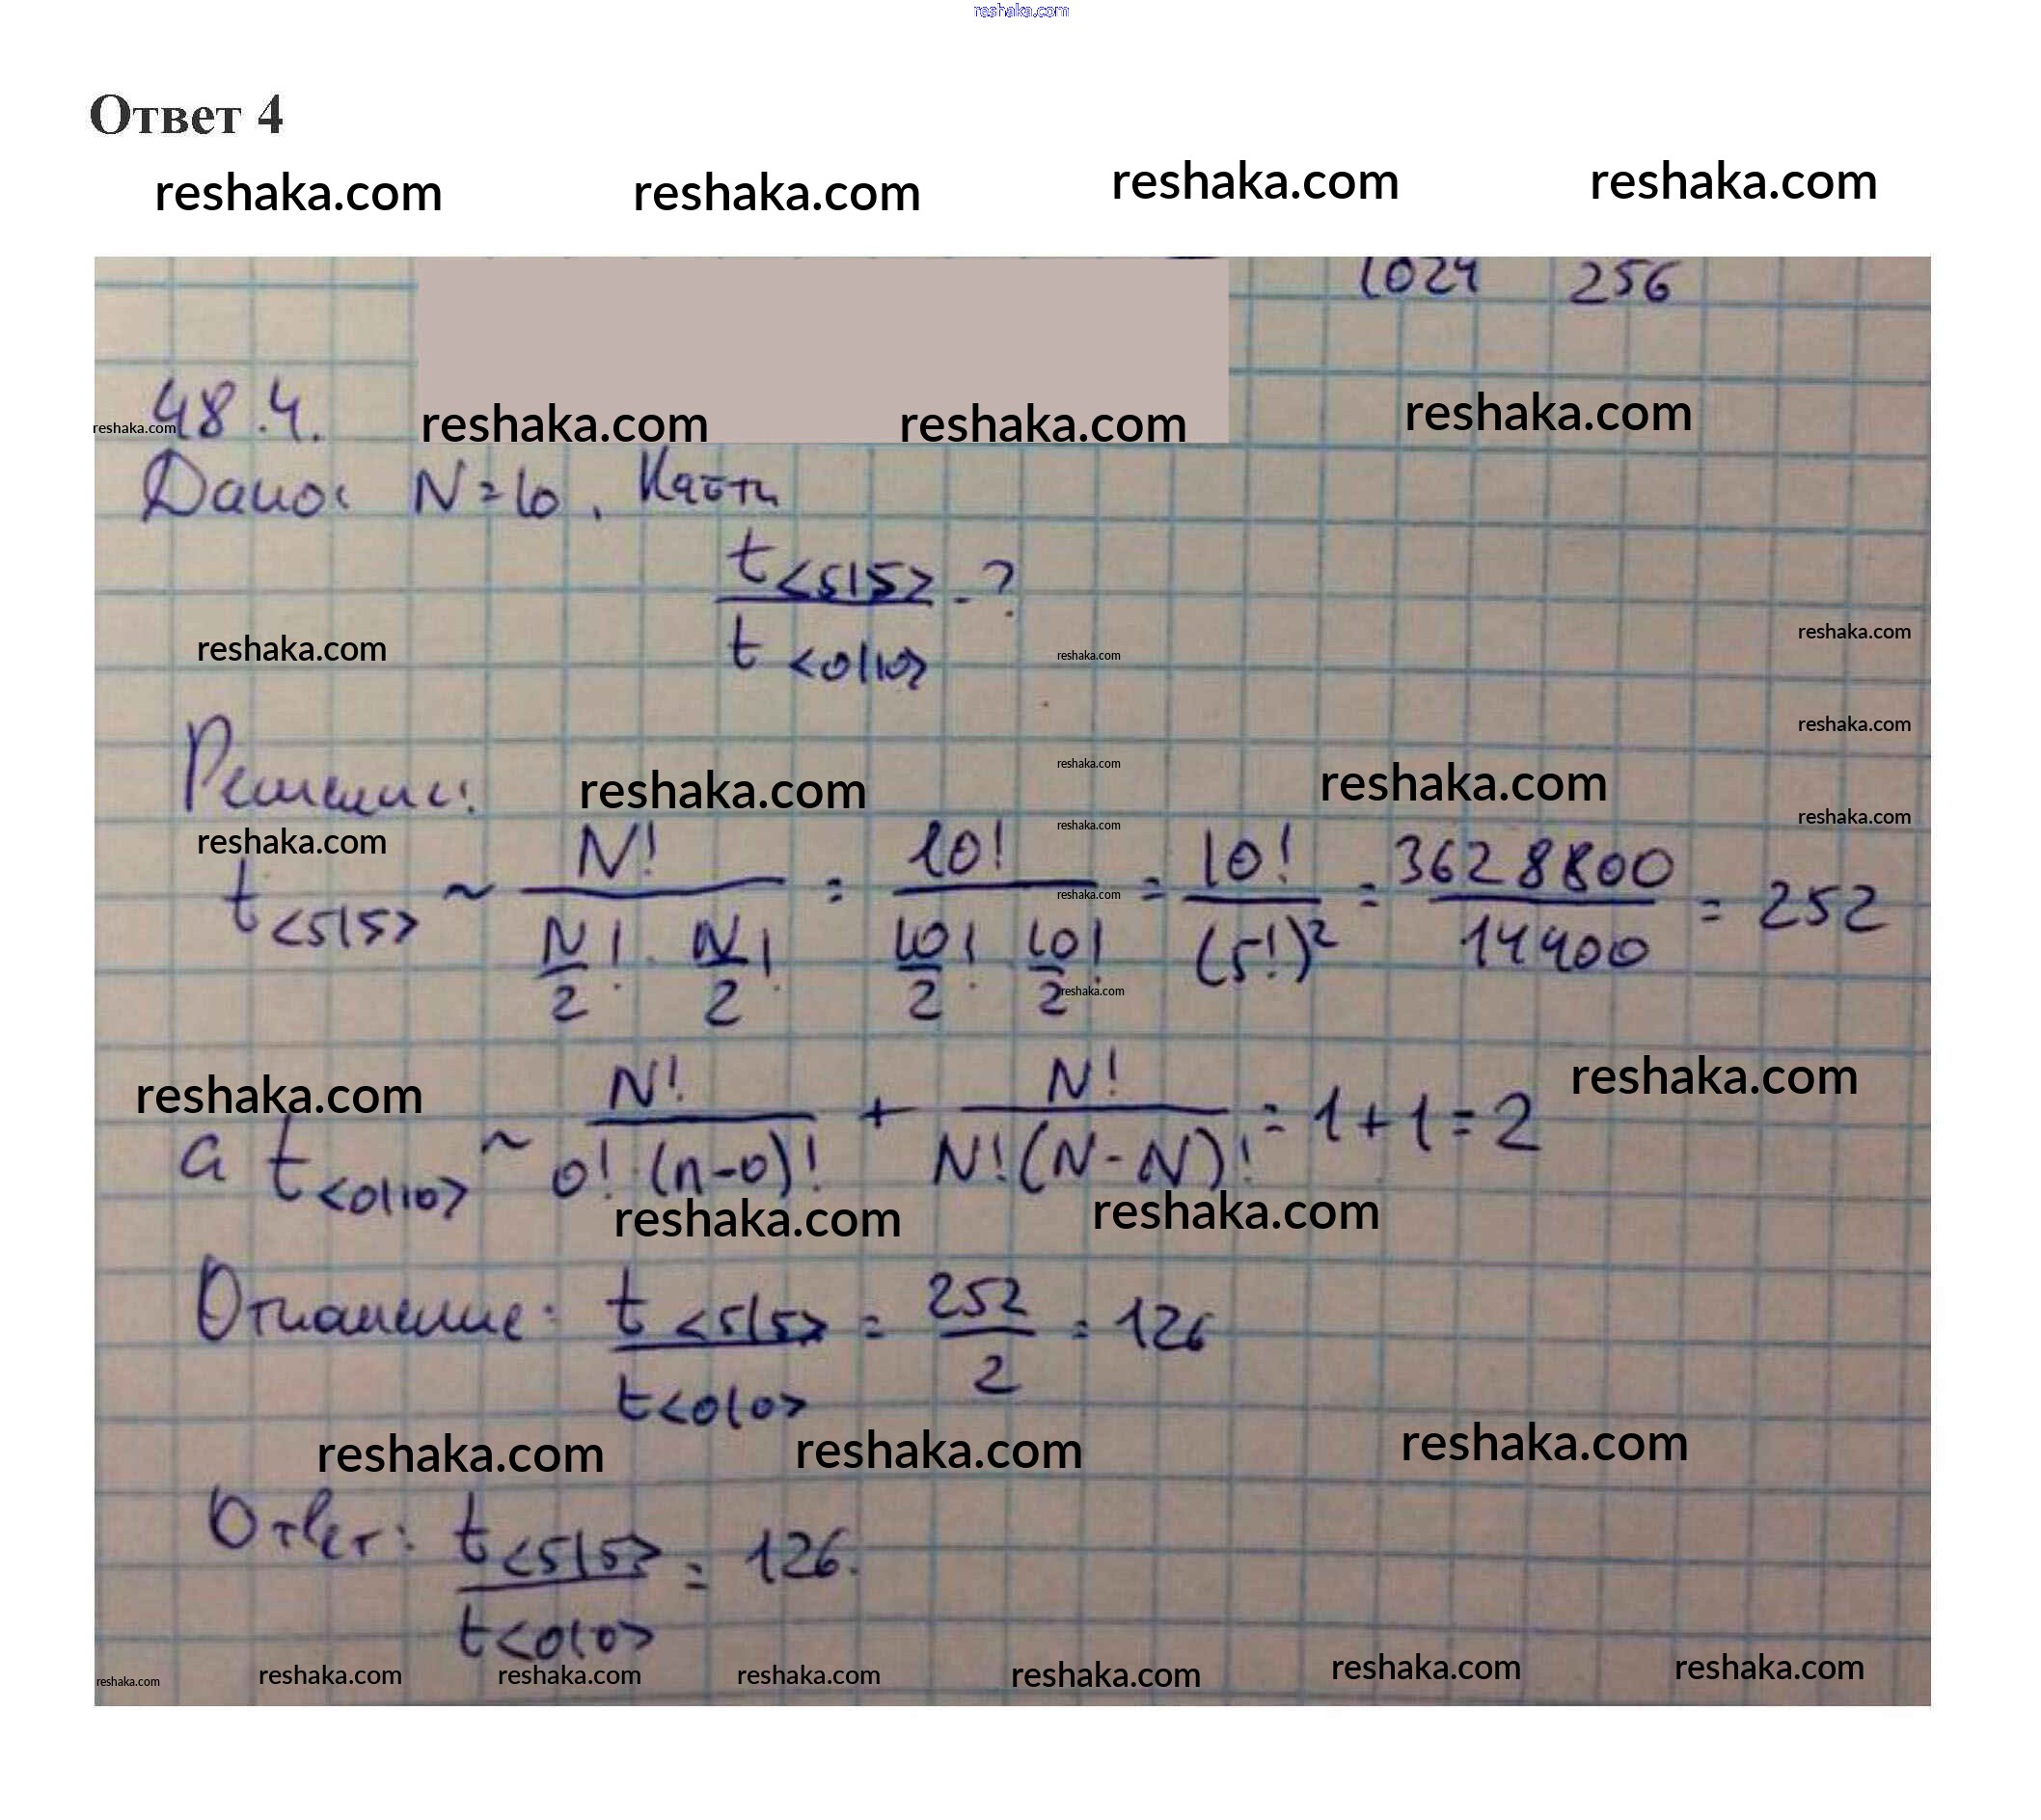 reshaka.com
Ответ 4
reshaka.com reshaka.com reshaka.com reshaka.com
1024 256
48.4.
reshaka.com reshaka.com reshaka.com reshaka.com
Дано: N=10. Найти
t<5|5> / t<0|10> - ?
reshaka.com reshaka.com reshaka.com
reshaka.com
Решение:
reshaka.com reshaka.com reshaka.com
reshaka.com reshaka.com reshaka.com
t<5|5> ~ N! / (N/2! · N/2!) = 10! / (10/2! · 10/2!) = 10! / (5!)² = 3628800 / 14400 = 252
reshaka.com
reshaka.com
reshaka.com reshaka.com
а t<0|10> ~ N! / (0! · (n-0)!) + N! / (N!(N-N)!) = 1+1=2
reshaka.com reshaka.com
Отношение: t<5|5> / t<0|0> = 252 / 2 = 126
reshaka.com reshaka.com reshaka.com
Ответ: t<5|5> / t<0|0> = 126.
reshaka.com reshaka.com reshaka.com reshaka.com reshaka.com reshaka.com reshaka.com